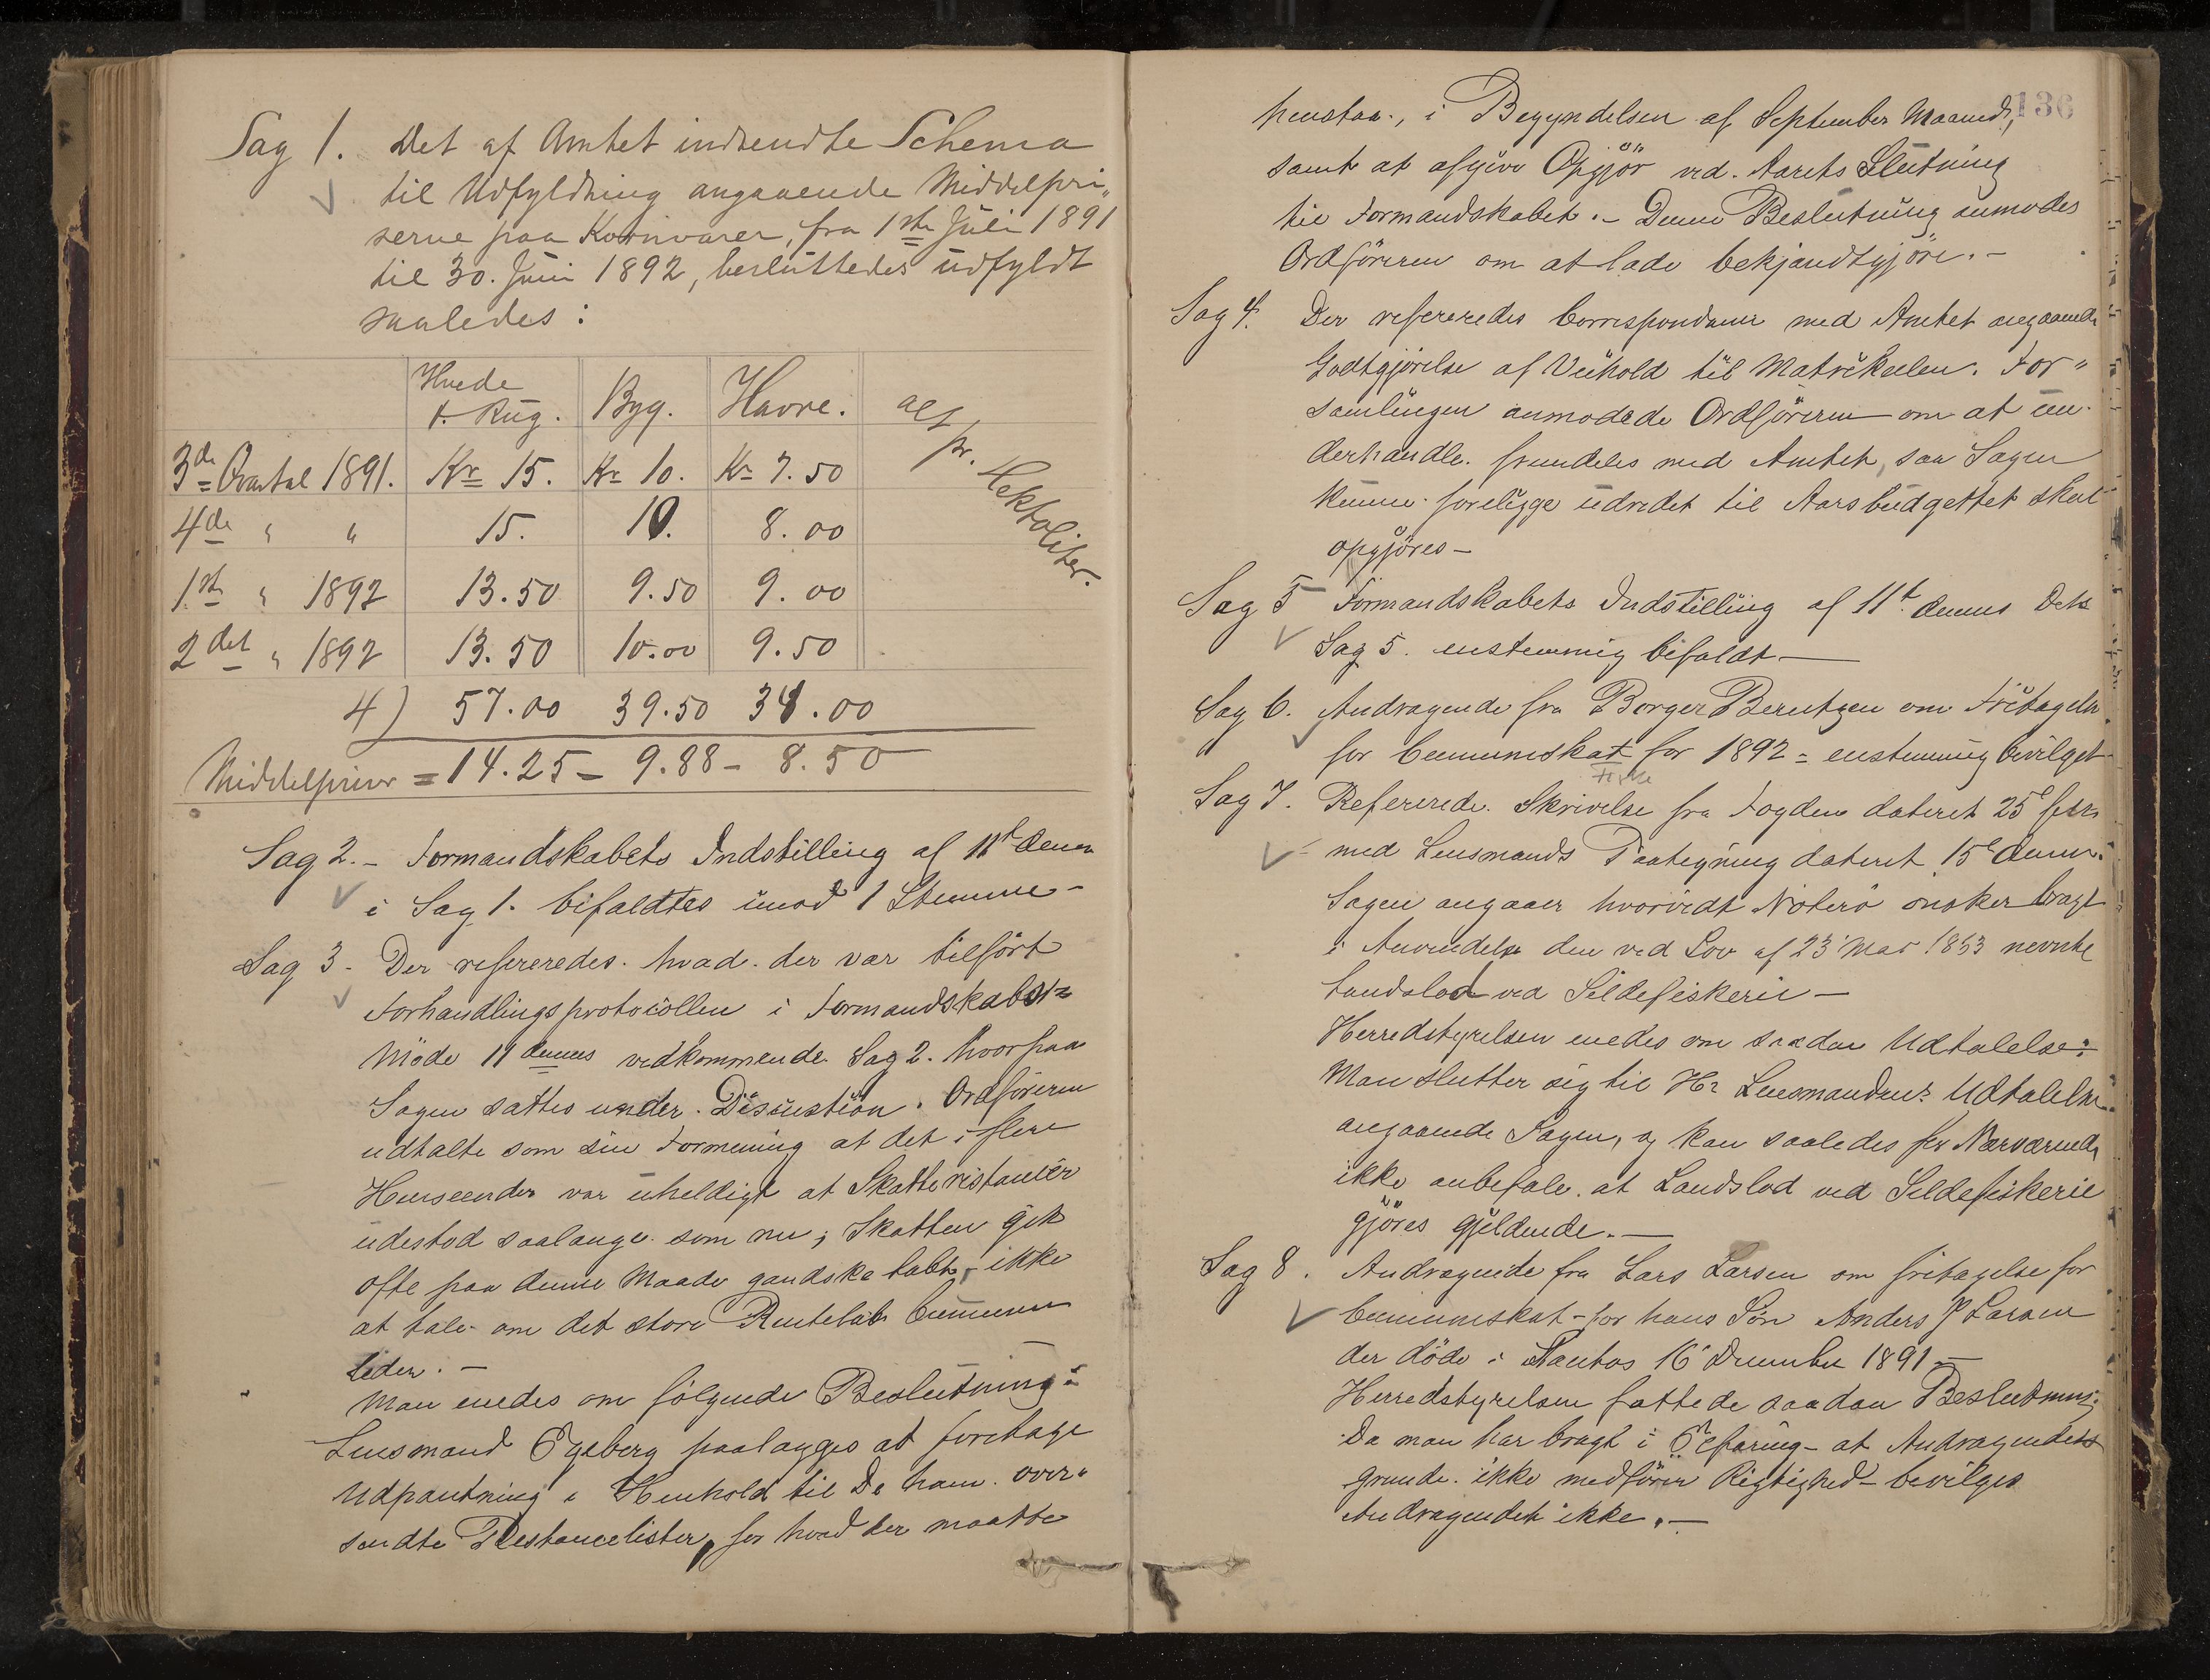 Sag 1. Det af Amtet indsendte Schema
til Udfyldning angaaende Middelpri„
serne paa Kornvarer, fra 1ste Juli 1891
til 30. Juni 1892, besluttedes udfyldt
saaledes:
Hvede
+ Rug. Byg. Havre. alt
pr. Hektoliter.
3de Qvartal 1891. Kr 15. Kr 10. Kr 7.50
4de " " 15. 10. 8.00
1ste " 1892 13.50 9.50 9.00
2det " 1892 13.50 10.00 9.50
4) 57.00 39.50 34.00
Middelpriser = 14.25 – 9.88 – 8.50
Sag 2. – Formandskabets Indstilling af 11te dennes
i Sag 1. bifaldtes imod 1 Stemme –
Sag 3 – Der refereredes hvad der var tilført
Forhandlingsprotocollen i Formandskabs=
Møde 11 dennes vedkommende Sag 2. hvorpaa
Sagen sattes under Discustion. Ordføreren
udtalte som sin Formening at det i flere
Henseender var uheldigt at Skatterestancer
udestod saalange som nu; Skatten gik
ofte paa denne Maade gandske tabt, – ikke
at tale om det store Rentetab Communen
lider. –
Man enedes om følgende Beslutning:
Lensmand Egeberg paalægges at foretage
Udpantning i Henhold til De ham over„
sendte Restancelister, for hvad der maatte
136
henstaa, i Begyndelsen af September Maaned,
samt at afgive Opgjør ved Aarets Slutning
til Formandskabet. – Denne Beslutning anmodes
Ordføreren om at lade bekjendtgjøre. –
Sag 4. Der refereredes Correspondance med Amtet angaaende
Godtgjørelse af Veihold til Matrikulen. For„
samlingen anmodede Ordføreren om at un„
derhandle fremdeles med Amtet, saa Sagen
kunne foreligge udredet til Aarsbudgettet skal
opgjøres –
Sag 5 Formandskabets Indstilling af 11te dennes Dets
Sag 5. enstemmig bifaldt –
Sag 6. Andragende fra Borger Berntzen om Fritagelse
for Communskat for 1892 = enstemmig bevilget
Sag 7. Refererede Skrivelse fra Fogden dateret 25de
med Lensmands Paategning dateret 15de dennes.
Sagen angaaer hvorvidt Nøterø ønsker bragt
i Anvendelse den ved Lov af 23 Mai 1853 nevnte
Landslod ved Sildefiskerie –
Herredstyrelsen enedes om saadan Udtalelse:
Man slutter sig til Hr Lensmandens Udtalelse
angaaende Sagen, og kan saaledes for Nærværende
ikke anbefale at Landslod ved Sildefiskerie
gjøres gjeldende. –
Sag 8. Andragende fra Lars Larsen om fritagelse for
Communskat – for hans Søn Anders P Larsen
der døde i Santos 16 December 1891 –
Herredstyrelsen fattede saadan Beslutning:
Da man har bragt i Erfaring – at Andragendets
Grunde ikke medfører Rigtighed – bevilges
Andragendet ikke. –